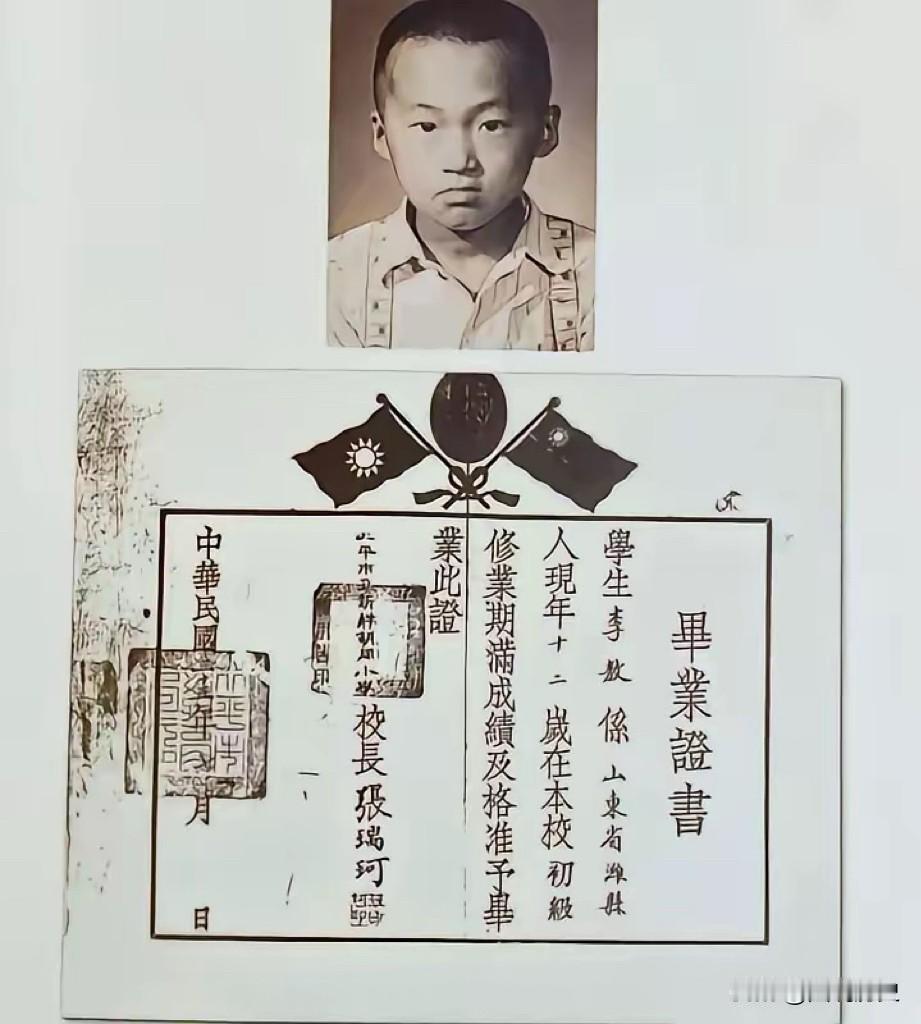 畢業證書
學生李敖係山東省濰縣
人現年十二歲在本校初級
修業期滿成績及格准予畢
業此證
小學校長張瑞珂
中華民國
年
月
日